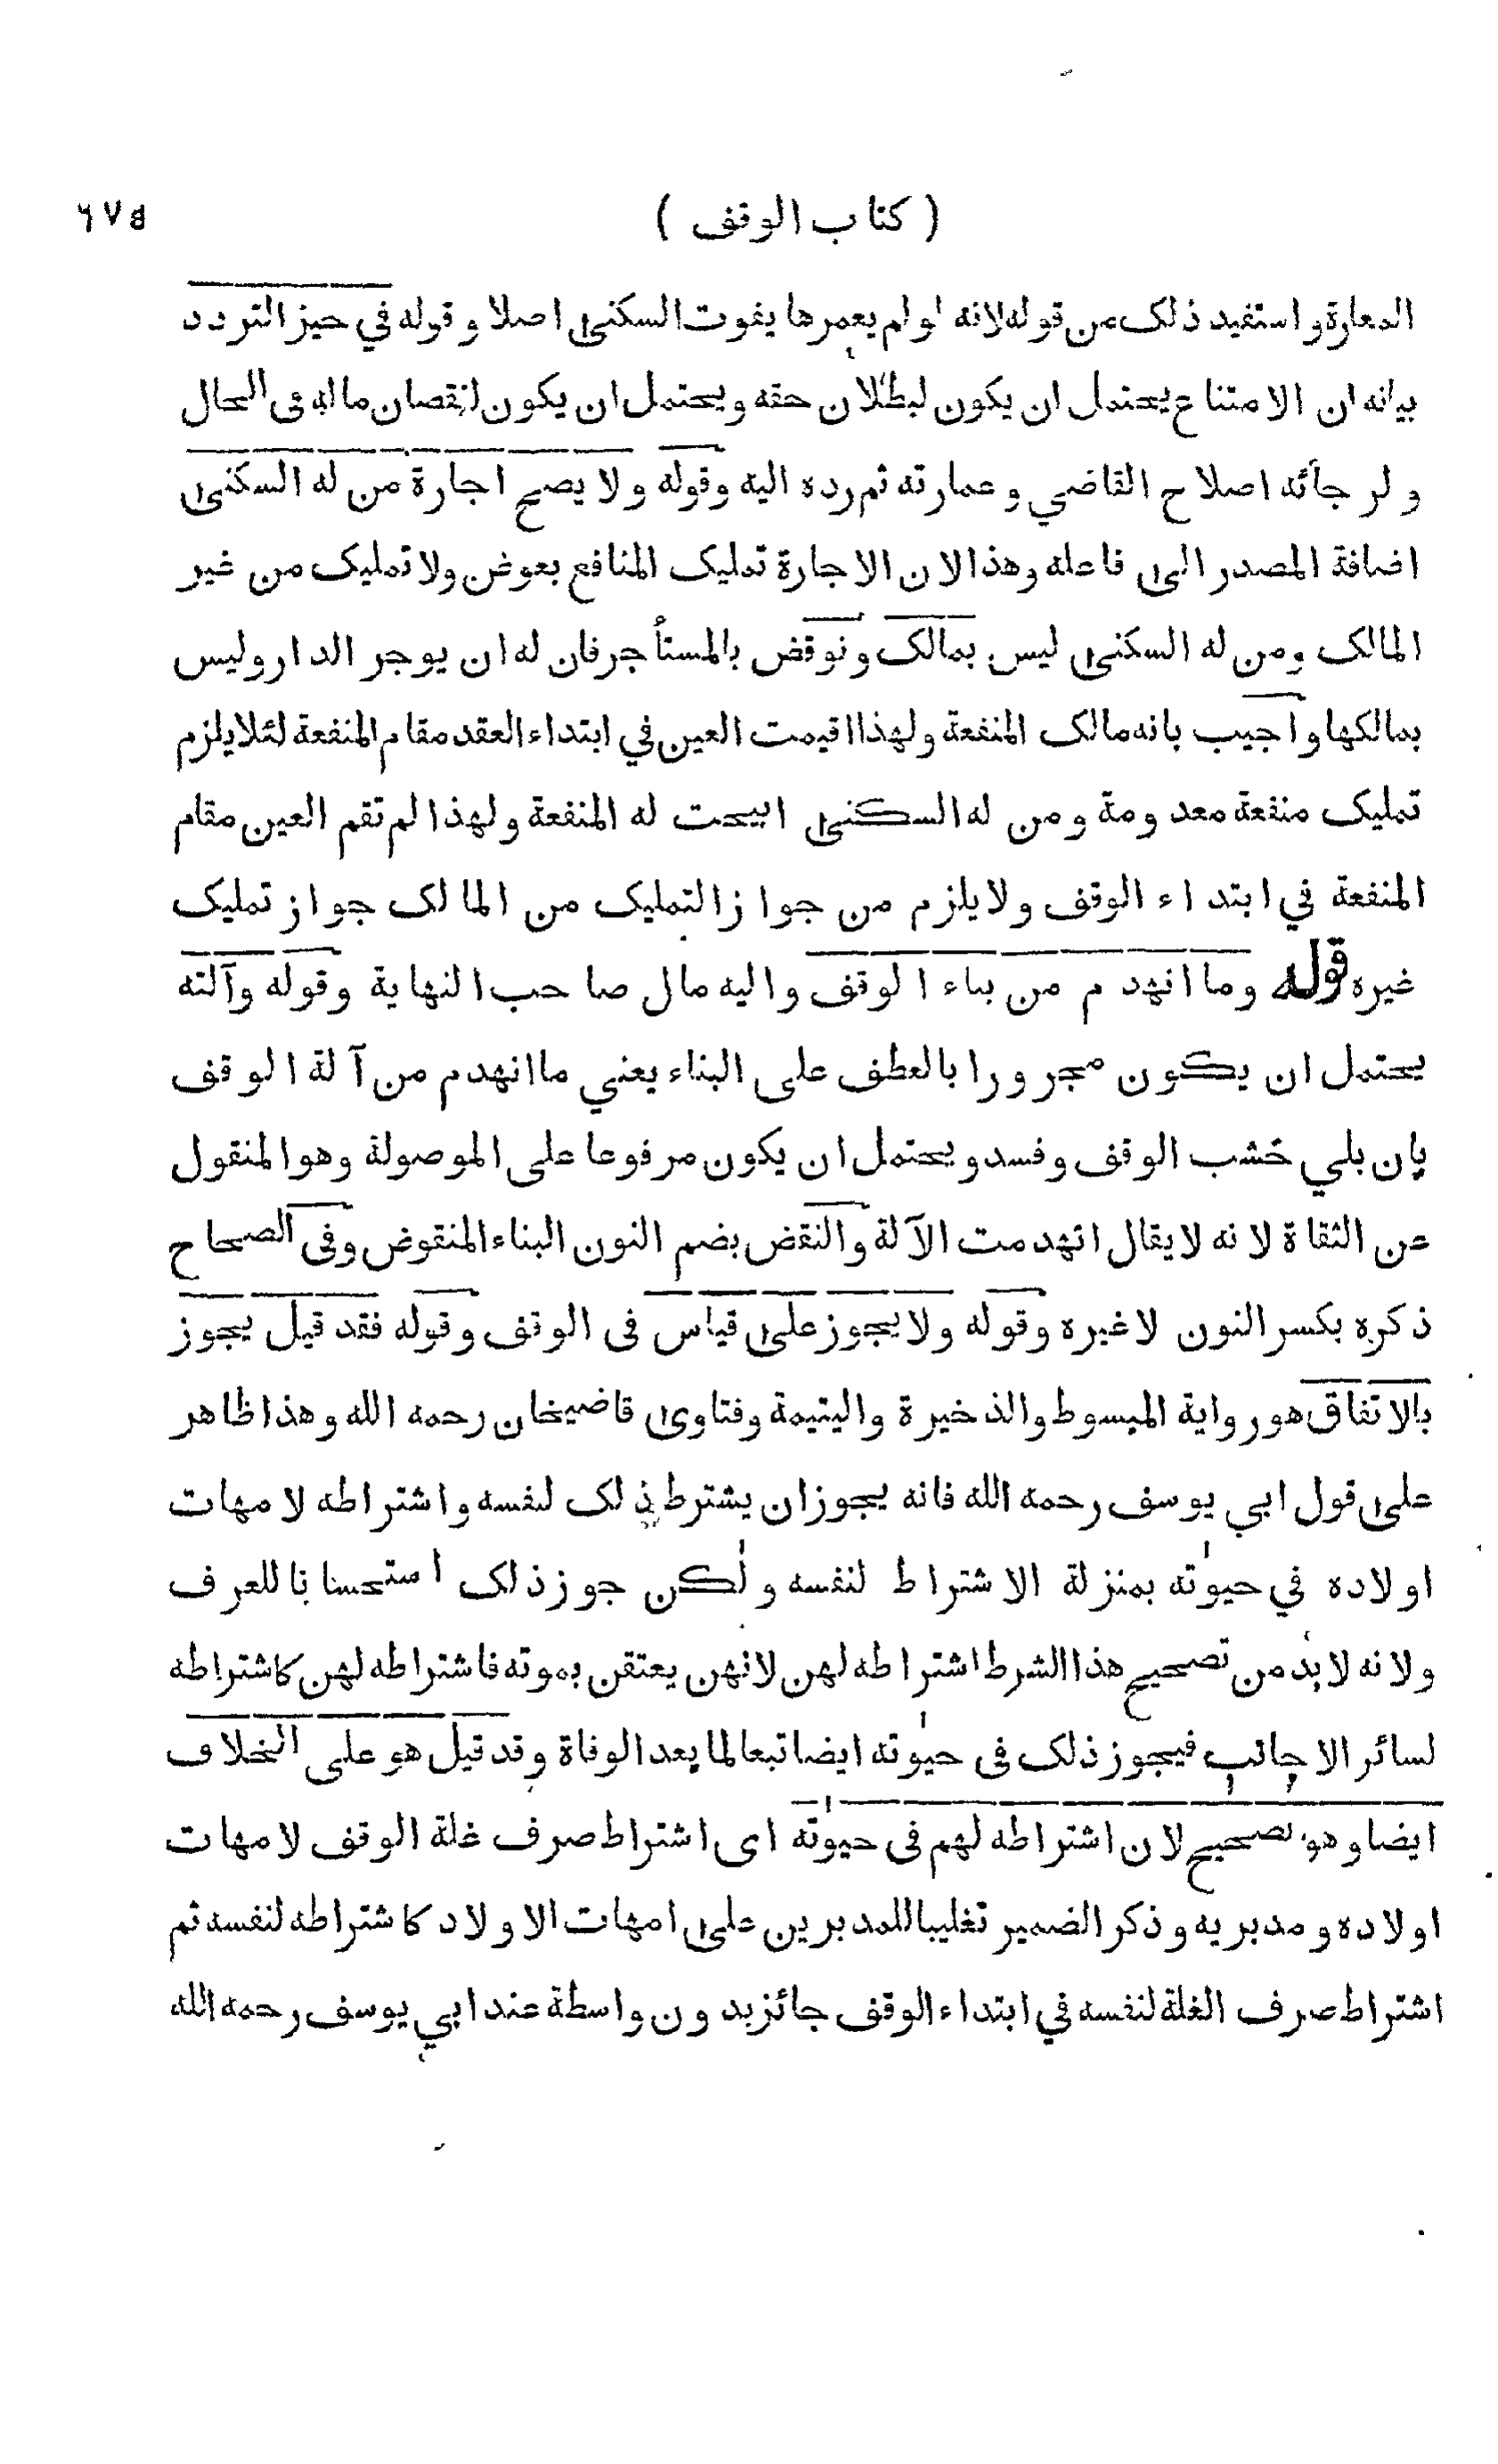 ( كتاب الوقف ) ٦٧٥
المعارة واستفيد ذلك من قوله لانه لو لم يعمرها يفوت السكنى اصلا وقوله في حيز التردد
بيانه ان الامتناع يحتمل ان يكون لبطلان حقه ويحتمل ان يكون لنقصان ماله في الحال
ولرجائه اصلاح القاضي وعمارته ثم رده اليه وقوله ولا يصح اجارة من له السكنى
اضافة المصدر الى فاعله وهذا لان الاجارة تمليك المنافع بعوض ولا تمليك من غير
المالك ومن له السكنى ليس بمالك ونوقض بالمستأجر فان له ان يوجر الدار وليس
بمالكها واجيب بانه مالك المنفعة ولهذا اقيمت العين في ابتداء العقد مقام المنفعة لئلا يلزم
تمليك منفعة معدومة ومن له السكنى ابيحت له المنفعة ولهذا لم تقم العين مقام
المنفعة في ابتداء الوقف ولا يلزم من جواز التمليك من المالك جواز تمليك
غيره قوله وما انهدم من بناء الوقف واليه مال صاحب النهاية وقوله وآلته
يحتمل ان يكون مجرورا بالعطف على البناء يعني ما انهدم من آلة الوقف
بان بلي خشب الوقف وفسد ويحتمل ان يكون مرفوعا على الموصولة وهو المنقول
عن الثقاة لانه لا يقال انهدمت الآلة والنقض بضم النون البناء المنقوض وفى الصحاح
ذكره بكسر النون لا غيره وقوله ولا يجوز على قياس فى الوقف وقوله فقد قيل يجوز
بالاتفاق هو رواية المبسوط والذخيرة واليتيمة وفتاوى قاضيخان رحمه الله وهذا ظاهر
على قول ابي يوسف رحمه الله فانه يجوز ان يشترط ذلك لنفسه واشتراطه لامهات
اولاده في حيوته بمنزلة الاشتراط لنفسه ولكن جوز ذلك استحسانا للعرف
ولانه لابد من تصحيح هذا الشرط اشتراطه لهن لانهن يعتقن بموته فاشتراطه لهن كاشتراطه
لسائر الاجانب فيجوز ذلك فى حيوته ايضا تبعا لما بعد الوفاة وقد قيل هو على الخلاف
ايضا وهو تصحيح لان اشتراطه لهم فى حيوته اى اشتراط صرف غلة الوقف لامهات
اولاده ومدبريه وذكر الضمير تغليبا للمدبرين على امهات الاولاد كاشتراطه لنفسه ثم
اشتراط صرف الغلة لنفسه في ابتداء الوقف جائز بدون واسطة عند ابي يوسف رحمه الله